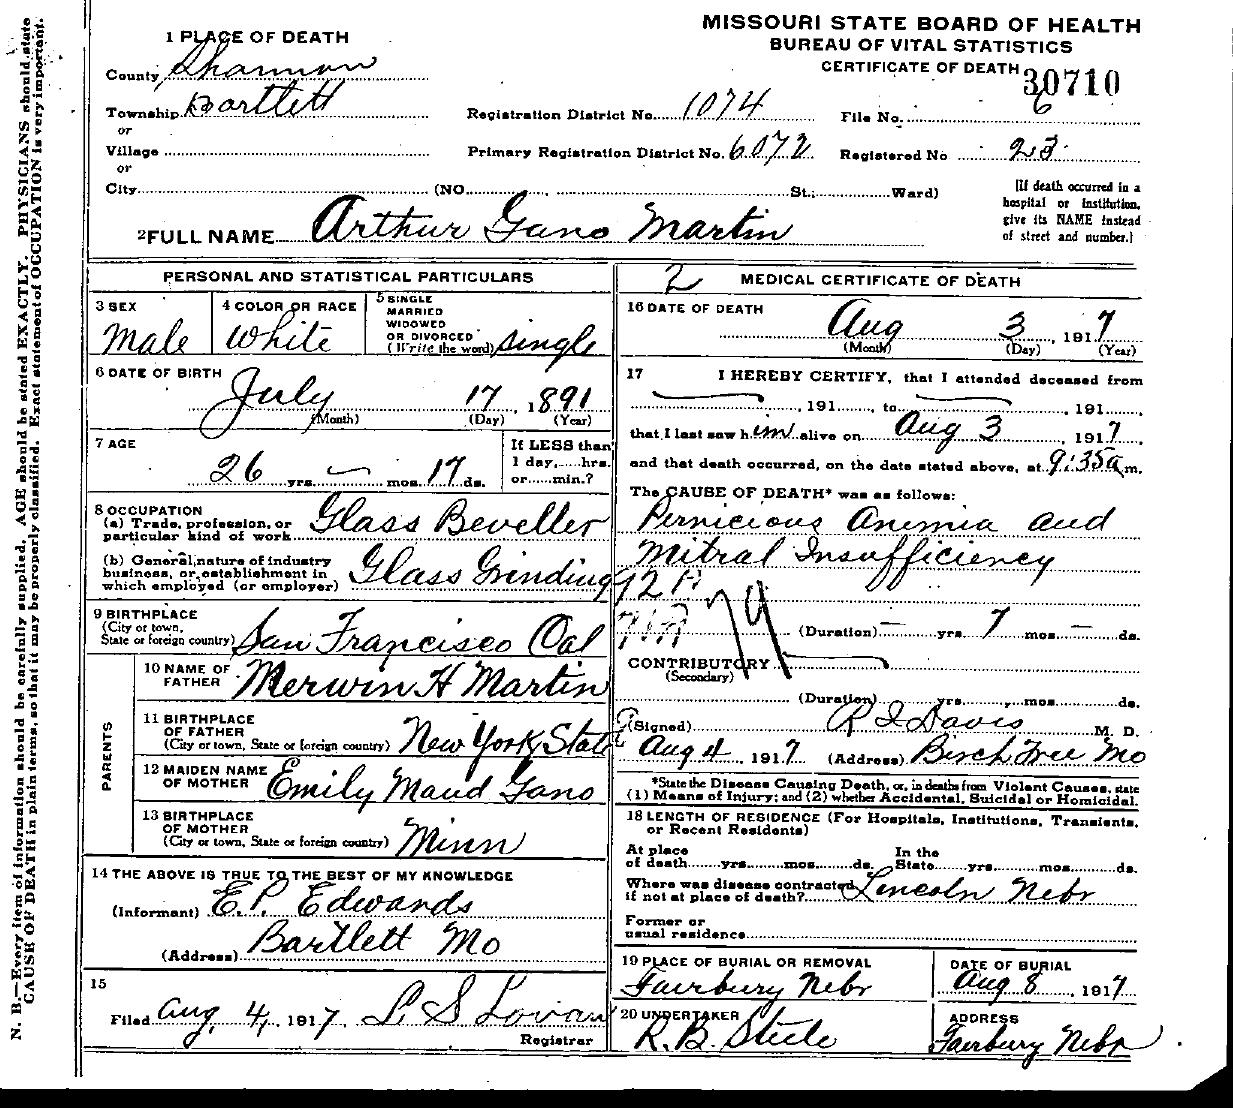 MISSOURI STATE BOARD OF HEALTH
BUREAU OF VITAL STATISTICS
CERTIFICATE OF DEATH
30710
1 PLACE OF DEATH
County Shannon
Township Bartlett
or
Village
or
City (NO. St.; Ward)
Registration District No. 1074
File No. 6
Primary Registration District No. 6072
Registered No 23
[If death occurred in a
hospital or institution,
give its NAME instead
of street and number.]
2 FULL NAME Arthur Gano Martin
PERSONAL AND STATISTICAL PARTICULARS
3 SEX
Male
4 COLOR OR RACE
White
5 SINGLE
MARRIED
WIDOWED
OR DIVORCED
(Write the word) Single
6 DATE OF BIRTH
July 17, 1891
(Month) (Day) (Year)
7 AGE
26 yrs. — mos. 17 ds.
If LESS than
1 day, hrs.
or min.?
8 OCCUPATION
(a) Trade, profession, or
particular kind of work Glass Beveller
(b) General nature of industry
business, or establishment in
which employed (or employer) Glass Grinding
9 BIRTHPLACE
(City or town,
State or foreign country) San Francisco Cal
PARENTS
10 NAME OF
FATHER Merwin H Martin
11 BIRTHPLACE
OF FATHER
(City or town, State or foreign country) New York State
12 MAIDEN NAME
OF MOTHER Emily Maud Gano
13 BIRTHPLACE
OF MOTHER
(City or town, State or foreign country) Minn
14 THE ABOVE IS TRUE TO THE BEST OF MY KNOWLEDGE
(Informant) E. P. Edwards
(Address) Bartlett Mo
15
Filed Aug. 4, 1917, L S Lovan
Registrar
2 MEDICAL CERTIFICATE OF DEATH
16 DATE OF DEATH
Aug 3, 1917
(Month) (Day) (Year)
17 I HEREBY CERTIFY, that I attended deceased from
, 191 , to , 191 ,
that I last saw him alive on Aug 3, 1917,
and that death occurred, on the date stated above, at 9:35 a m.
The CAUSE OF DEATH* was as follows:
Pernicious Anemia and
Mitral Insufficiency
92A
74
(Duration) — yrs. 7 mos. — ds.
CONTRIBUTORY
(Secondary)
(Duration) yrs. mos. ds.
(Signed) R I Davis M. D.
Aug 4, 1917 (Address) Birch Tree Mo
*State the Disease Causing Death, or, in deaths from Violent Causes, state
(1) Means of Injury; and (2) whether Accidental, Suicidal or Homicidal.
18 LENGTH OF RESIDENCE (For Hospitals, Institutions, Transients,
or Recent Residents)
At place
of death yrs. mos. ds.
In the
State yrs. mos. ds.
Where was disease contracted
if not at place of death? Lincoln Nebr
Former or
usual residence
19 PLACE OF BURIAL OR REMOVAL
Fairbury Nebr
DATE OF BURIAL
Aug 8, 1917
20 UNDERTAKER
R. B. Steele
ADDRESS
Fairbury Nebr
N. B.—Every item of information should be carefully supplied. AGE should be stated EXACTLY. PHYSICIANS should state
CAUSE OF DEATH in plain terms, so that it may be properly classified. Exact statement of OCCUPATION is very important.